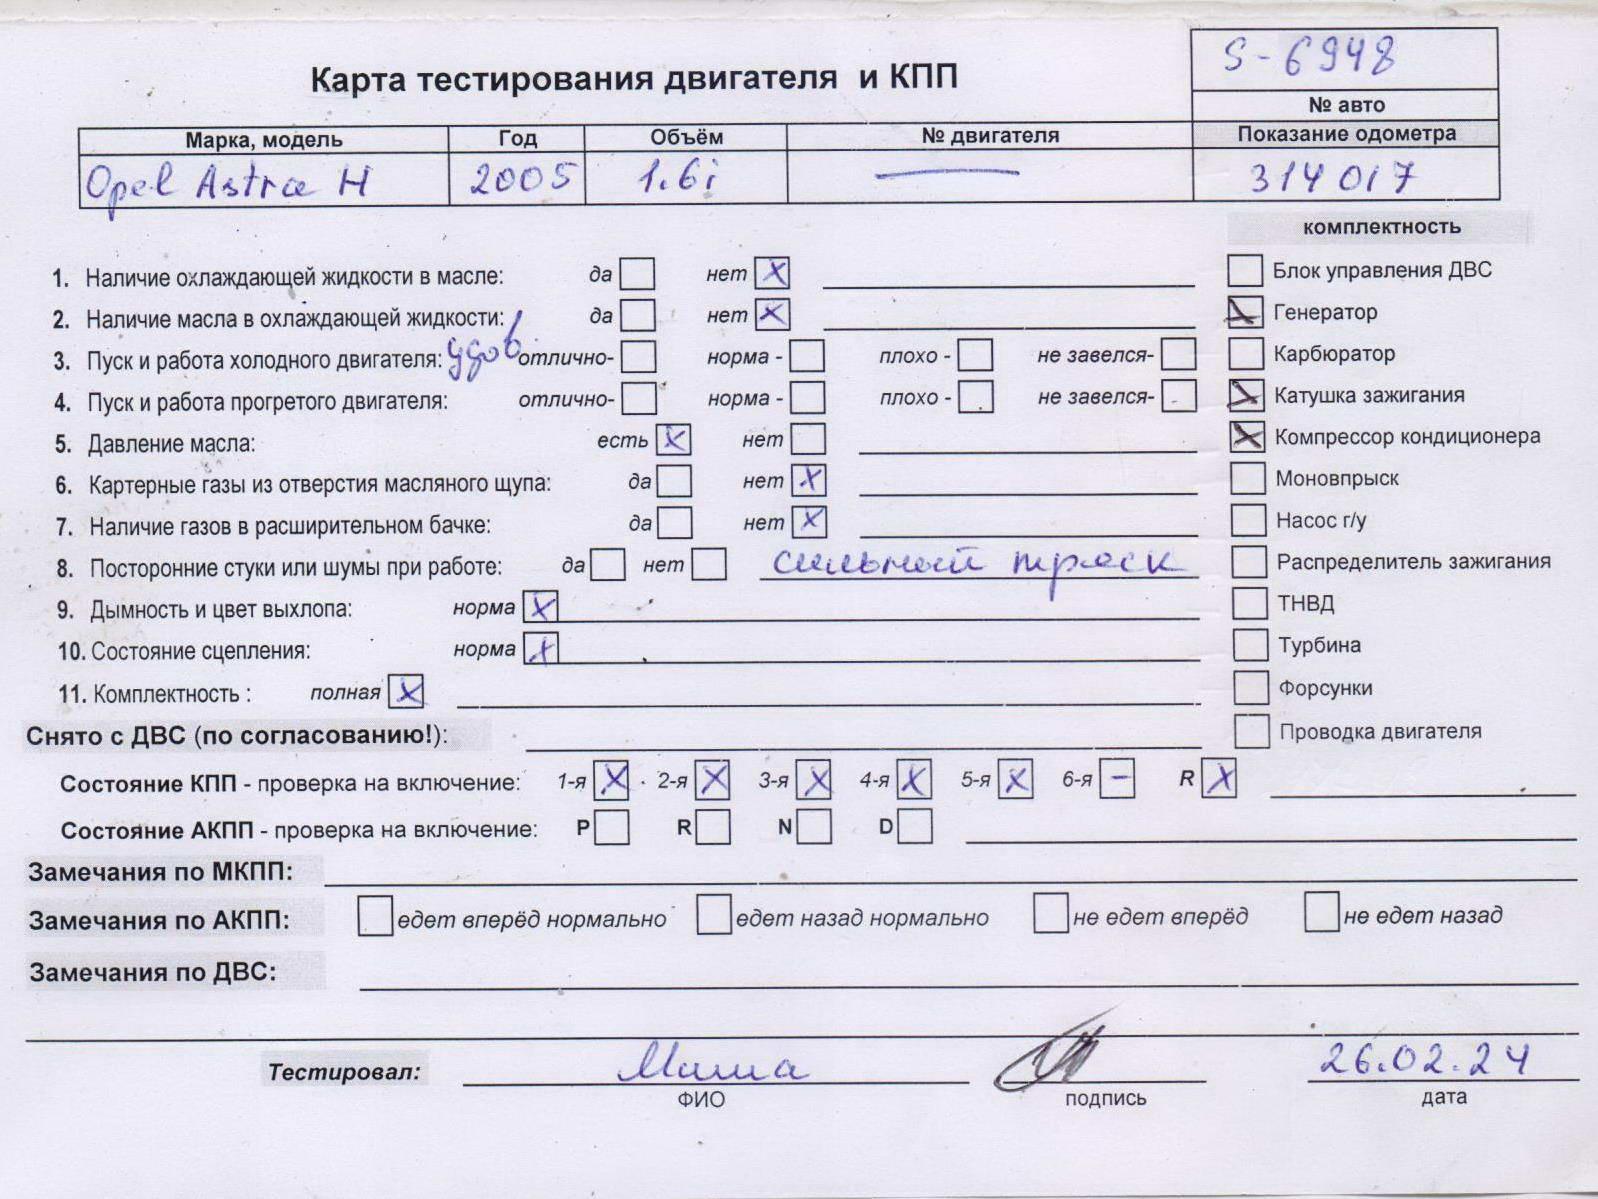 S-6948
Карта тестирования двигателя и КПП
№ авто
Марка, модель Год Объём № двигателя Показание одометра
Opel Astra H 2005 1.6i — 314017
комплектность
1. Наличие охлаждающей жидкости в масле: да нет X Блок управления ДВС
2. Наличие масла в охлаждающей жидкости: да нет X X Генератор
3. Пуск и работа холодного двигателя: удов. отлично- норма - плохо - не завелся- Карбюратор
4. Пуск и работа прогретого двигателя: отлично- норма - плохо - не завелся- X Катушка зажигания
5. Давление масла: есть X нет X Компрессор кондиционера
6. Картерные газы из отверстия масляного щупа: да нет X Моновпрыск
7. Наличие газов в расширительном бачке: да нет X Насос г/у
8. Посторонние стуки или шумы при работе: да нет сильный треск Распределитель зажигания
9. Дымность и цвет выхлопа: норма X ТНВД
10. Состояние сцепления: норма X Турбина
11. Комплектность : полная X Форсунки
Снято с ДВС (по согласованию!): Проводка двигателя
Состояние КПП - проверка на включение: 1-я X 2-я X 3-я X 4-я X 5-я X 6-я – R X
Состояние АКПП - проверка на включение: P R N D
Замечания по МКПП:
Замечания по АКПП: едет вперёд нормально едет назад нормально не едет вперёд не едет назад
Замечания по ДВС:
Тестировал: Миша 26.02.24
ФИО подпись дата